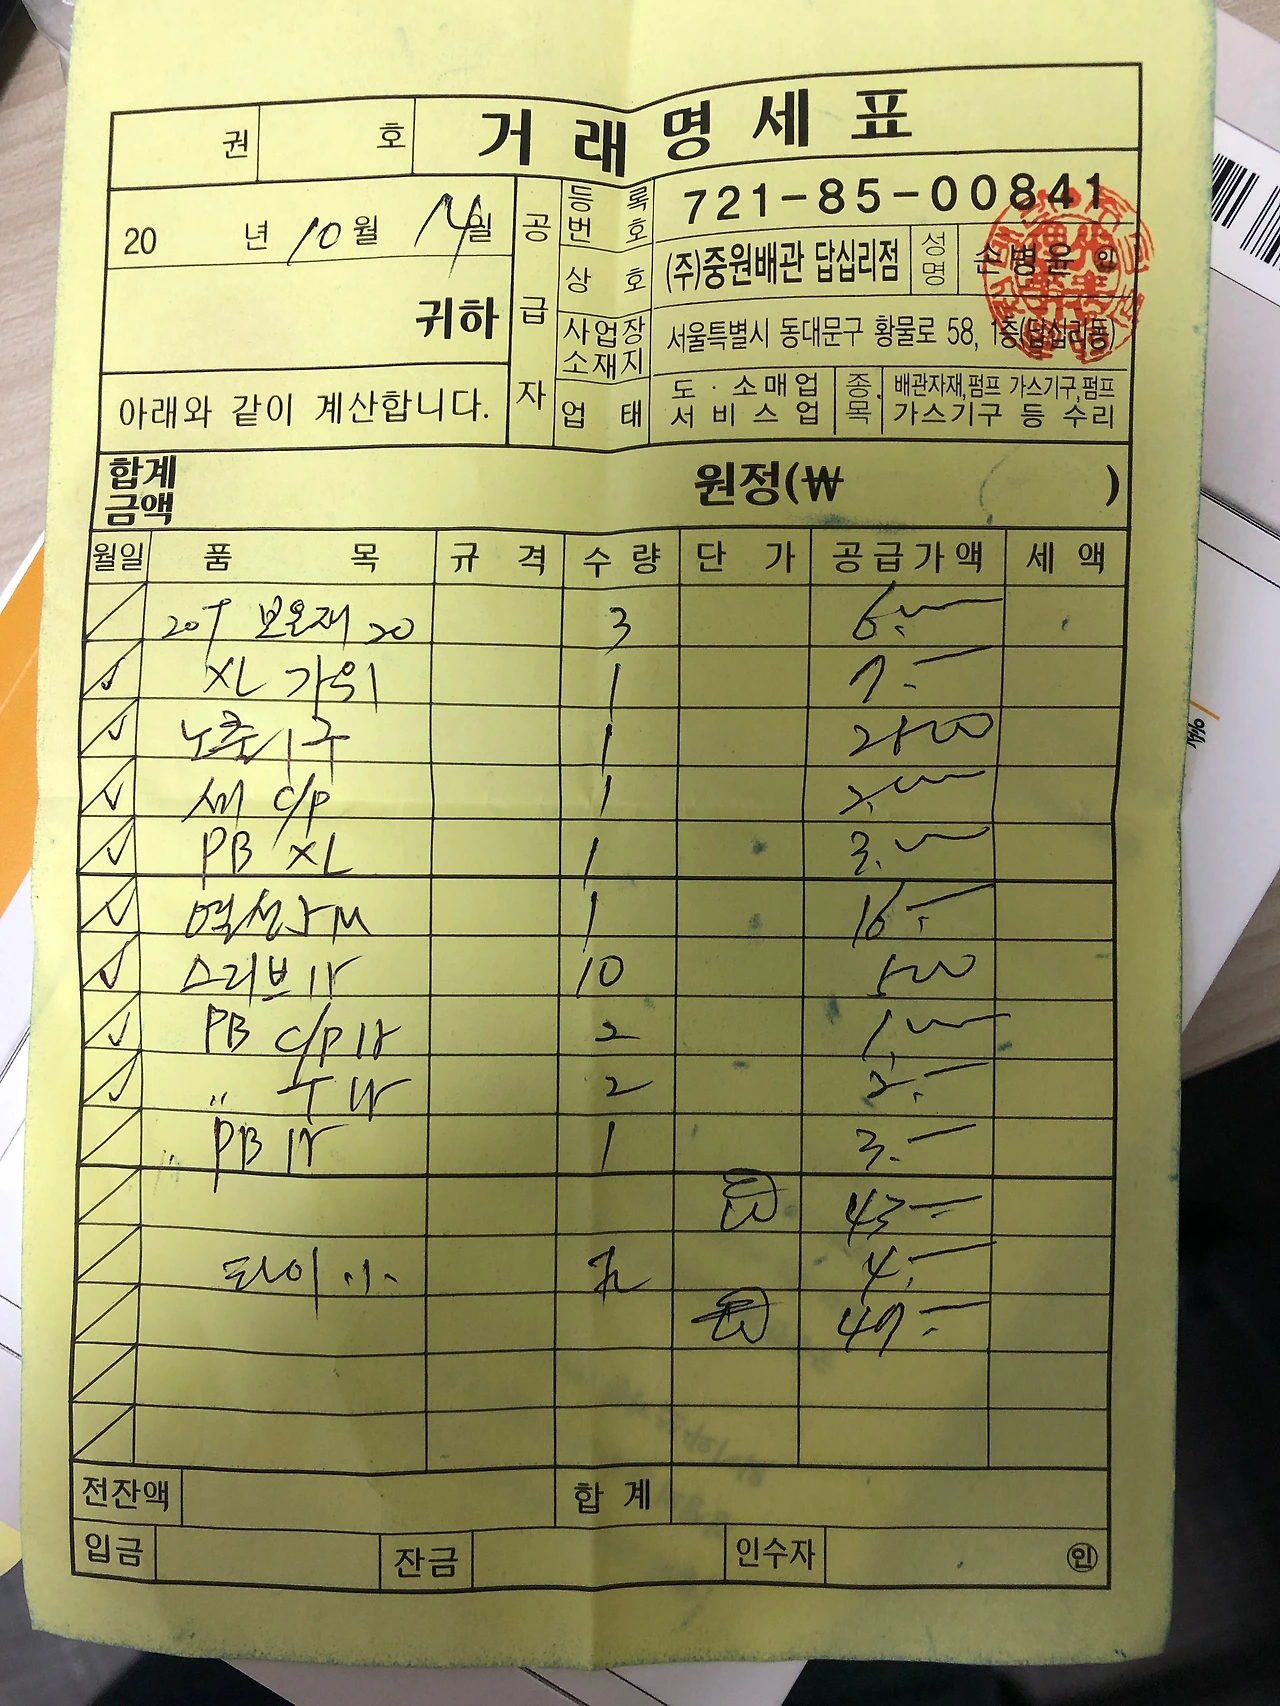 권 호 거래명세표
20 년 10월 14일
귀하
아래와 같이 계산합니다.
공급자
등록번호 721-85-00841
상호 (주)중원배관 답십리점 성명 손병윤 인
사업장소재지 서울특별시 동대문구 황물로 58, 1층(답십리동)
업태 도·소매업 서비스업 종목 배관자재,펌프 가스기구,펌프 가스기구 등 수리
합계금액 원정(₩ )
월일 품목 규격 수량 단가 공급가액 세액
20T 보온재 20 3 6.
XL 가위 1 7.-
1 2500
새 C/P 1 2.
PB XL 1 3.
1 16.-
스리브 15 10 500
PB C/P 15 2 1,
〃 15 2 2.-
〃 PB 15 1 3.-
43-
타이 小 4.-
47-
전잔액 합계
입금 잔금 인수자 인